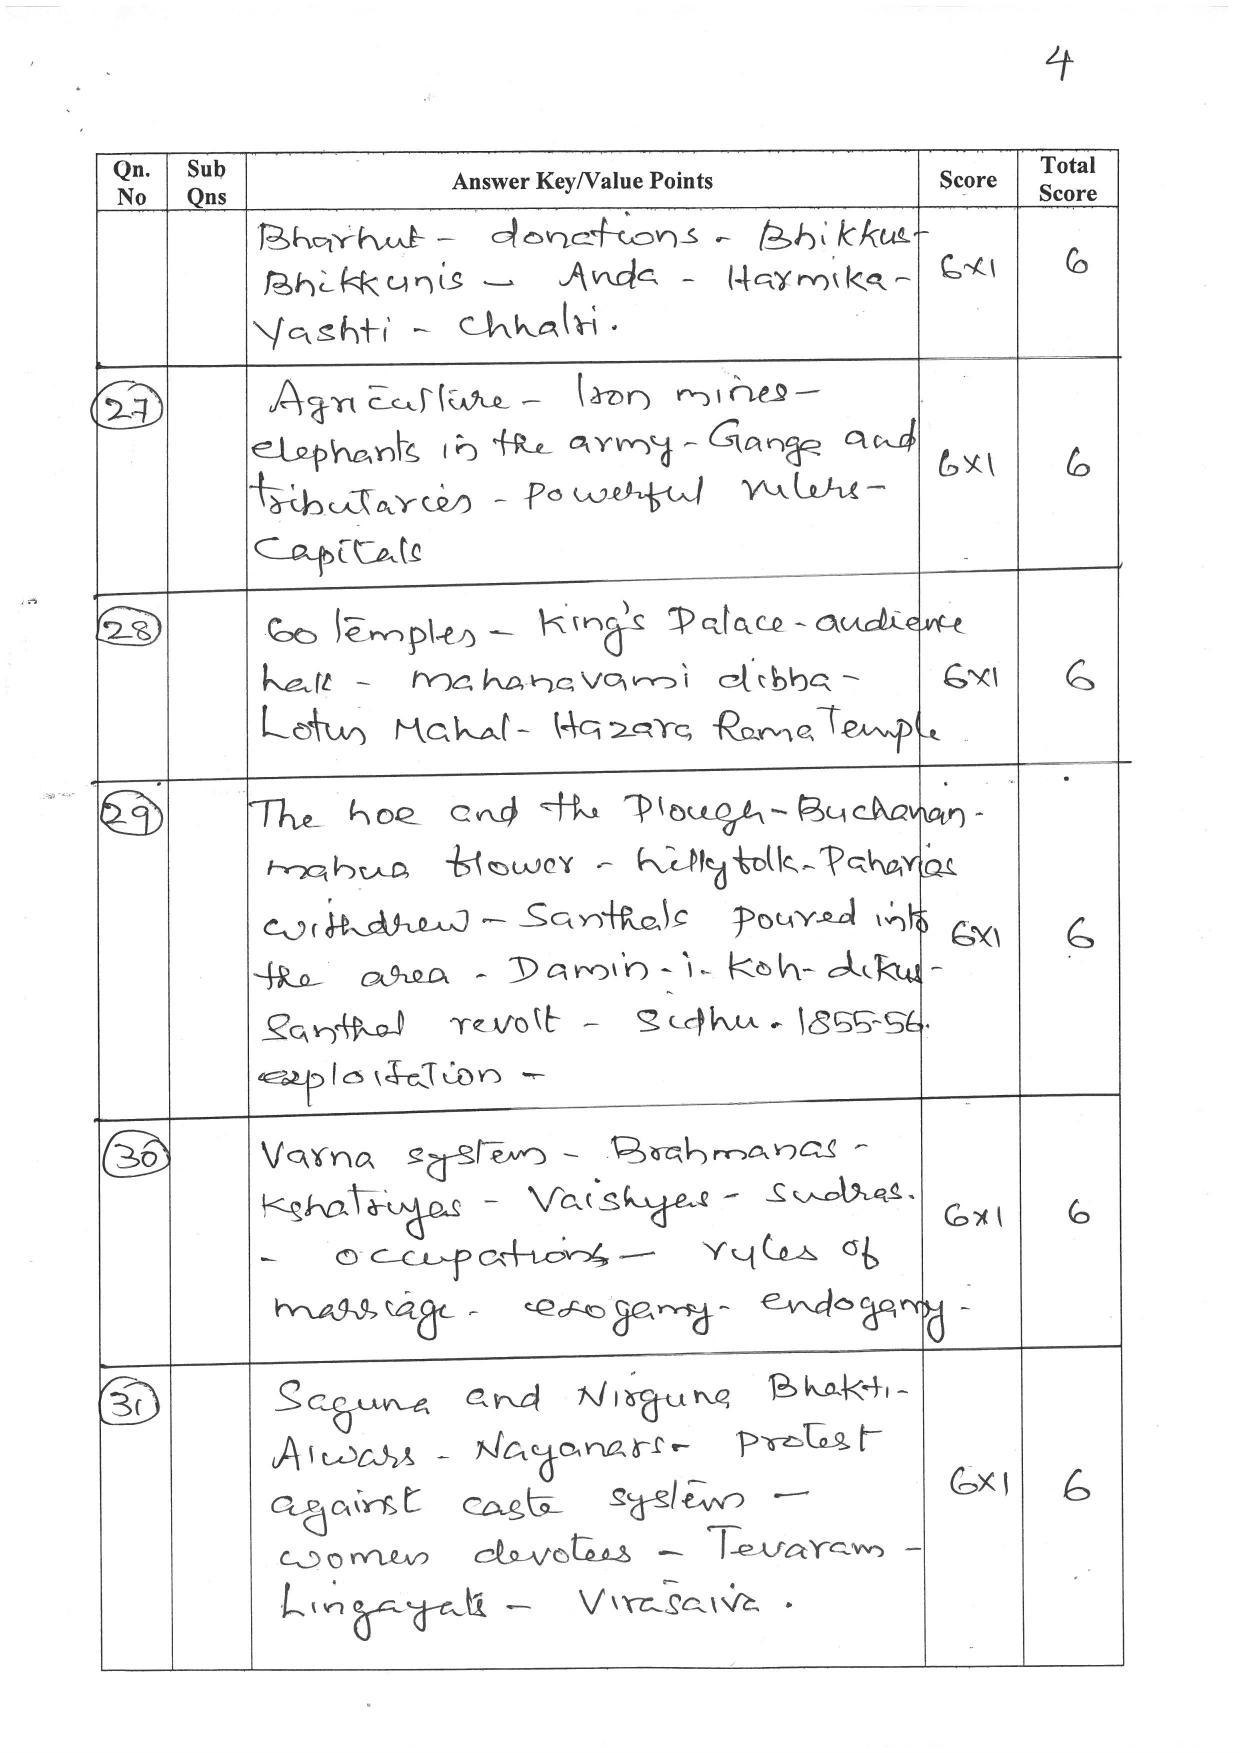 4
Qn. No | Sub Qns | Answer Key/Value Points | Score | Total Score
Bharhut - donations - Bhikkus-
Bhikkunis - Anda - Harmika-
Yashti - Chhatri. | 6x1 | 6
27 | Agriculture - Iron mines-
elephants in the army - Gange and
tributaries - Powerful rulers-
Capitals | 6x1 | 6
28 | 60 Temples - King's Palace - audience
hall - mahanavami dibba-
Lotus Mahal - Hazara Rama Temple | 6x1 | 6
29 | The hoe and the Plough - Buchanan-
mahua flower - hilly folk - Paharias
withdrew - Santhals poured into
the area - Damin-i-Koh - dikus-
Santhal revolt - Sidhu. 1855-56.
exploitation - | 6x1 | 6
30 | Varna system - Brahmanas -
Kshatriyas - Vaishyas - Sudras.
- occupations - rules of
marriage - exogamy - endogamy - | 6x1 | 6
31 | Saguna and Nirguna Bhakti-
Alwars - Nayanars - protest
against caste system -
women devotees - Tevaram -
Lingayats - Virasaiva. | 6x1 | 6